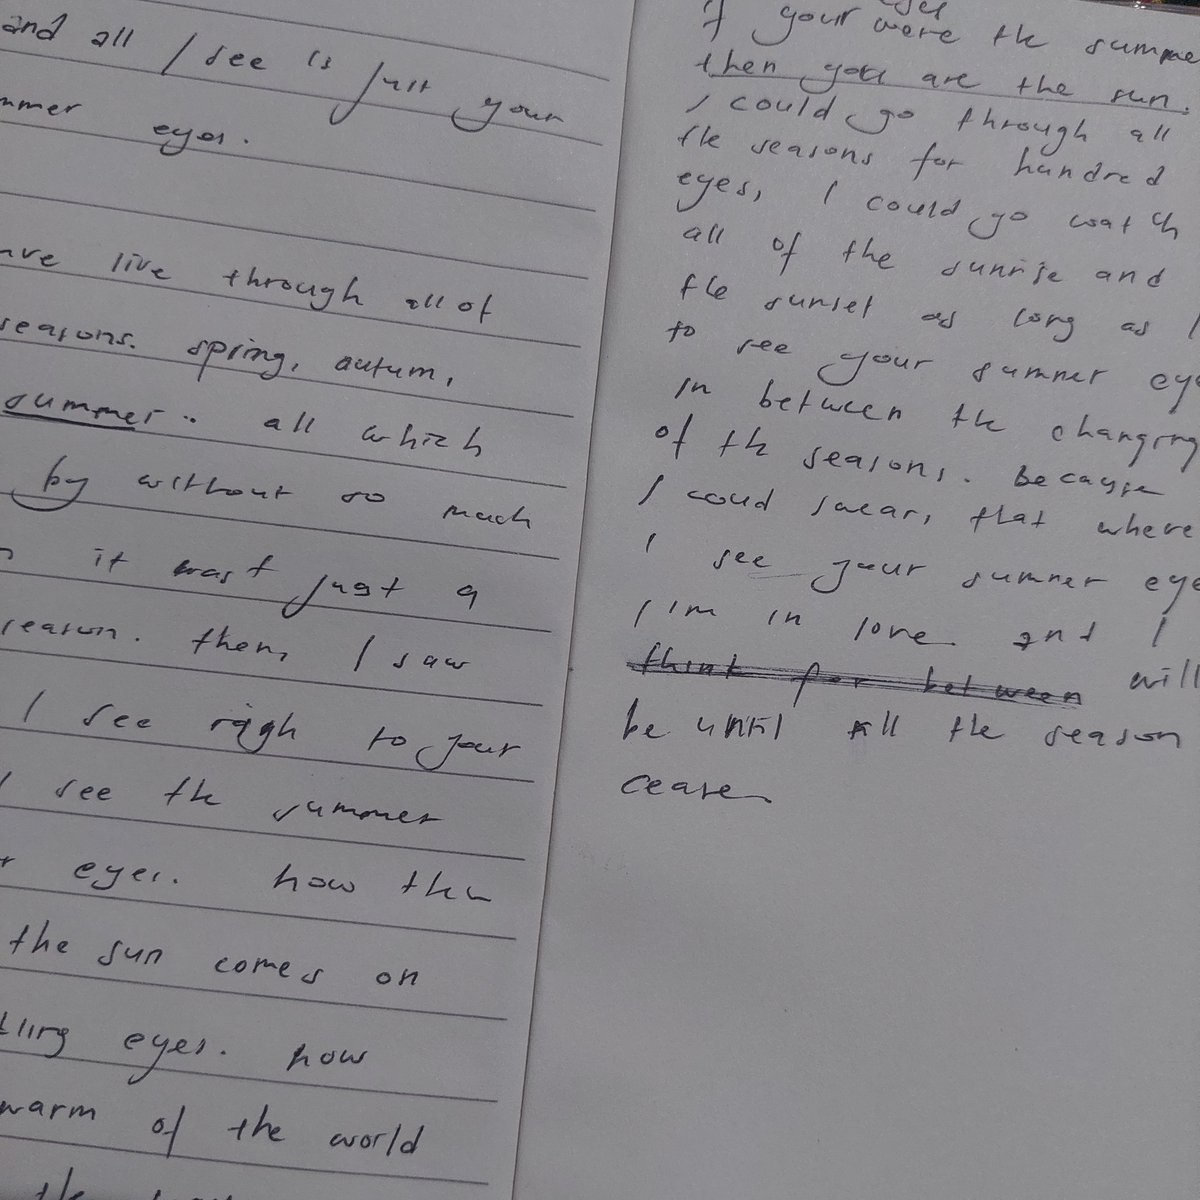 and all I see is just your
mmer eyes.
ave live through all of
seasons. spring, autum,
summer.. all which
by without so much
it wast just a
season. then, I saw
I see righ to your
I see the summer
r eyes. how the
the sun comes on
tling eyes. how
warm of the world
the
If your were the summe
then you are the sun.
I could go through all
the seasons for hundred
eyes, I could go watch
all of the sunrise and
the sunset as long as I
to see your summer eye
in between the changing
of the seasons. Because
I coud swear, that where
I see your summer eye
I I'm in love. and I
think for between will
be until all the season
cease